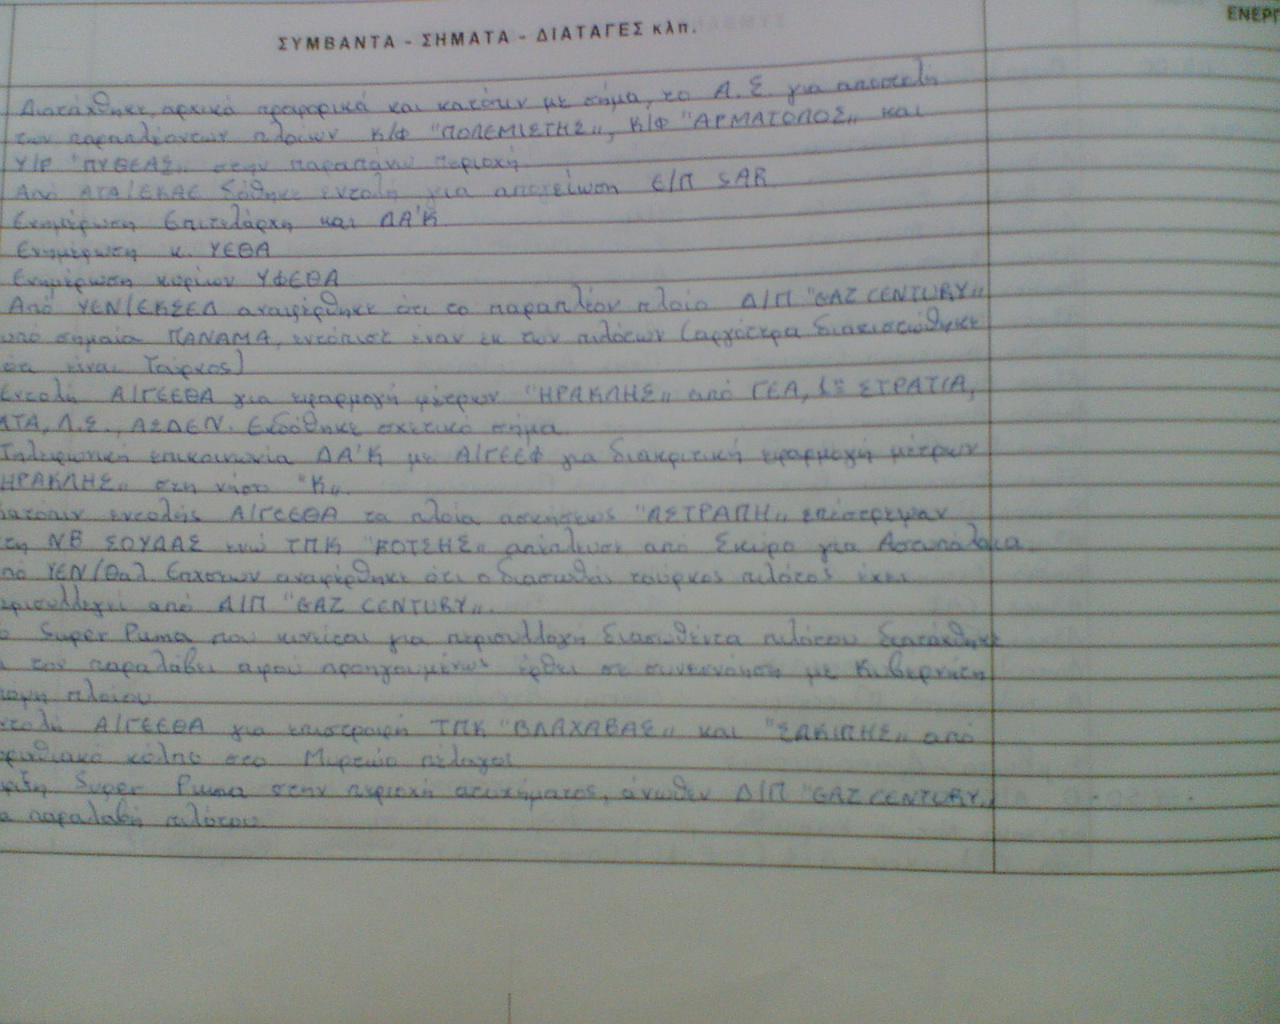 ΣΥΜΒΑΝΤΑ - ΣΗΜΑΤΑ - ΔΙΑΤΑΓΕΣ κλπ.
ΕΝΕΡΓ
Διατάχθηκε, αρχικά προφορικά και κατόπιν με σήμα, το Λ.Σ. για αποστολή
των παραπλεόντων πλοίων Κ/Φ "ΠΟΛΕΜΙΣΤΗΣ", Κ/Φ "ΑΡΜΑΤΟΛΟΣ" και
Υ/Γ "ΠΥΘΕΑΣ" στην παραπάνω περιοχή
Από ΑΤΑ/ΕΚΑΕ δόθηκε εντολή για απογείωση Ε/Π SAR
Ενημέρωση Επιτελάρχη και ΔΑ'Κ
Ενημέρωση κ. ΥΕΘΑ
Ενημέρωση κυρίου ΥΦΕΘΑ
Από ΥΕΝ/ΕΚΣΕΔ αναφέρθηκε ότι το παραπλέον πλοίο Δ/Π "GAZ CENTURY"
υπό σημαία ΠΑΝΑΜΑ, εντόπισε έναν εκ των πιλότων (αργότερα διαπιστώθηκε
ότι είναι Τούρκος)
Εντολή Α/ΓΕΕΘΑ για εφαρμογή μέτρων "ΗΡΑΚΛΗΣ" από ΓΕΑ, 1η ΣΤΡΑΤΙΑ,
ΑΤΑ, Λ.Σ., ΑΣΔΕΝ. Εκδόθηκε σχετικό σήμα
Τηλεφωνική επικοινωνία ΔΑ'Κ με Α/ΓΕΕΦ για διακριτική εφαρμογή μέτρων
ΗΡΑΚΛΗΣ" στη νήσο "Κ".
κατόπιν εντολής Α/ΓΕΕΘΑ τα πλοία ασκήσεως "ΑΣΤΡΑΠΗ" επέστρεψαν
στη ΝΒ ΣΟΥΔΑΣ ενώ ΤΠΚ "ΒΟΤΣΗΣ" απέπλευσε από Σκύρο για Αστυπάλαια
πό ΥΕΝ/Θαλ. αναφέρθηκε ότι ο διασωθείς τούρκος πιλότος έχει
ερισυλλεγεί από Δ/Π "GAZ CENTURY".
ο Super Puma που κινείται για περισυλλογή διασωθέντα πιλότου διατάχθηκε
α τον παραλάβει αφού προηγουμένως έρθει σε συνεννόηση με Κυβερνήτη
πλοίου
ντολή Α/ΓΕΕΘΑ για επιστροφή ΤΠΚ "ΒΛΑΧΑΒΑΣ" και "ΣΑΚΙΠΗΣ" από
ορινθιακό κόλπο στο Μυρτώο πέλαγος
φιξη Super Puma στην περιοχή ατυχήματος, άνωθεν Δ/Π "GAZ CENTURY"
α παραλαβή πιλότου